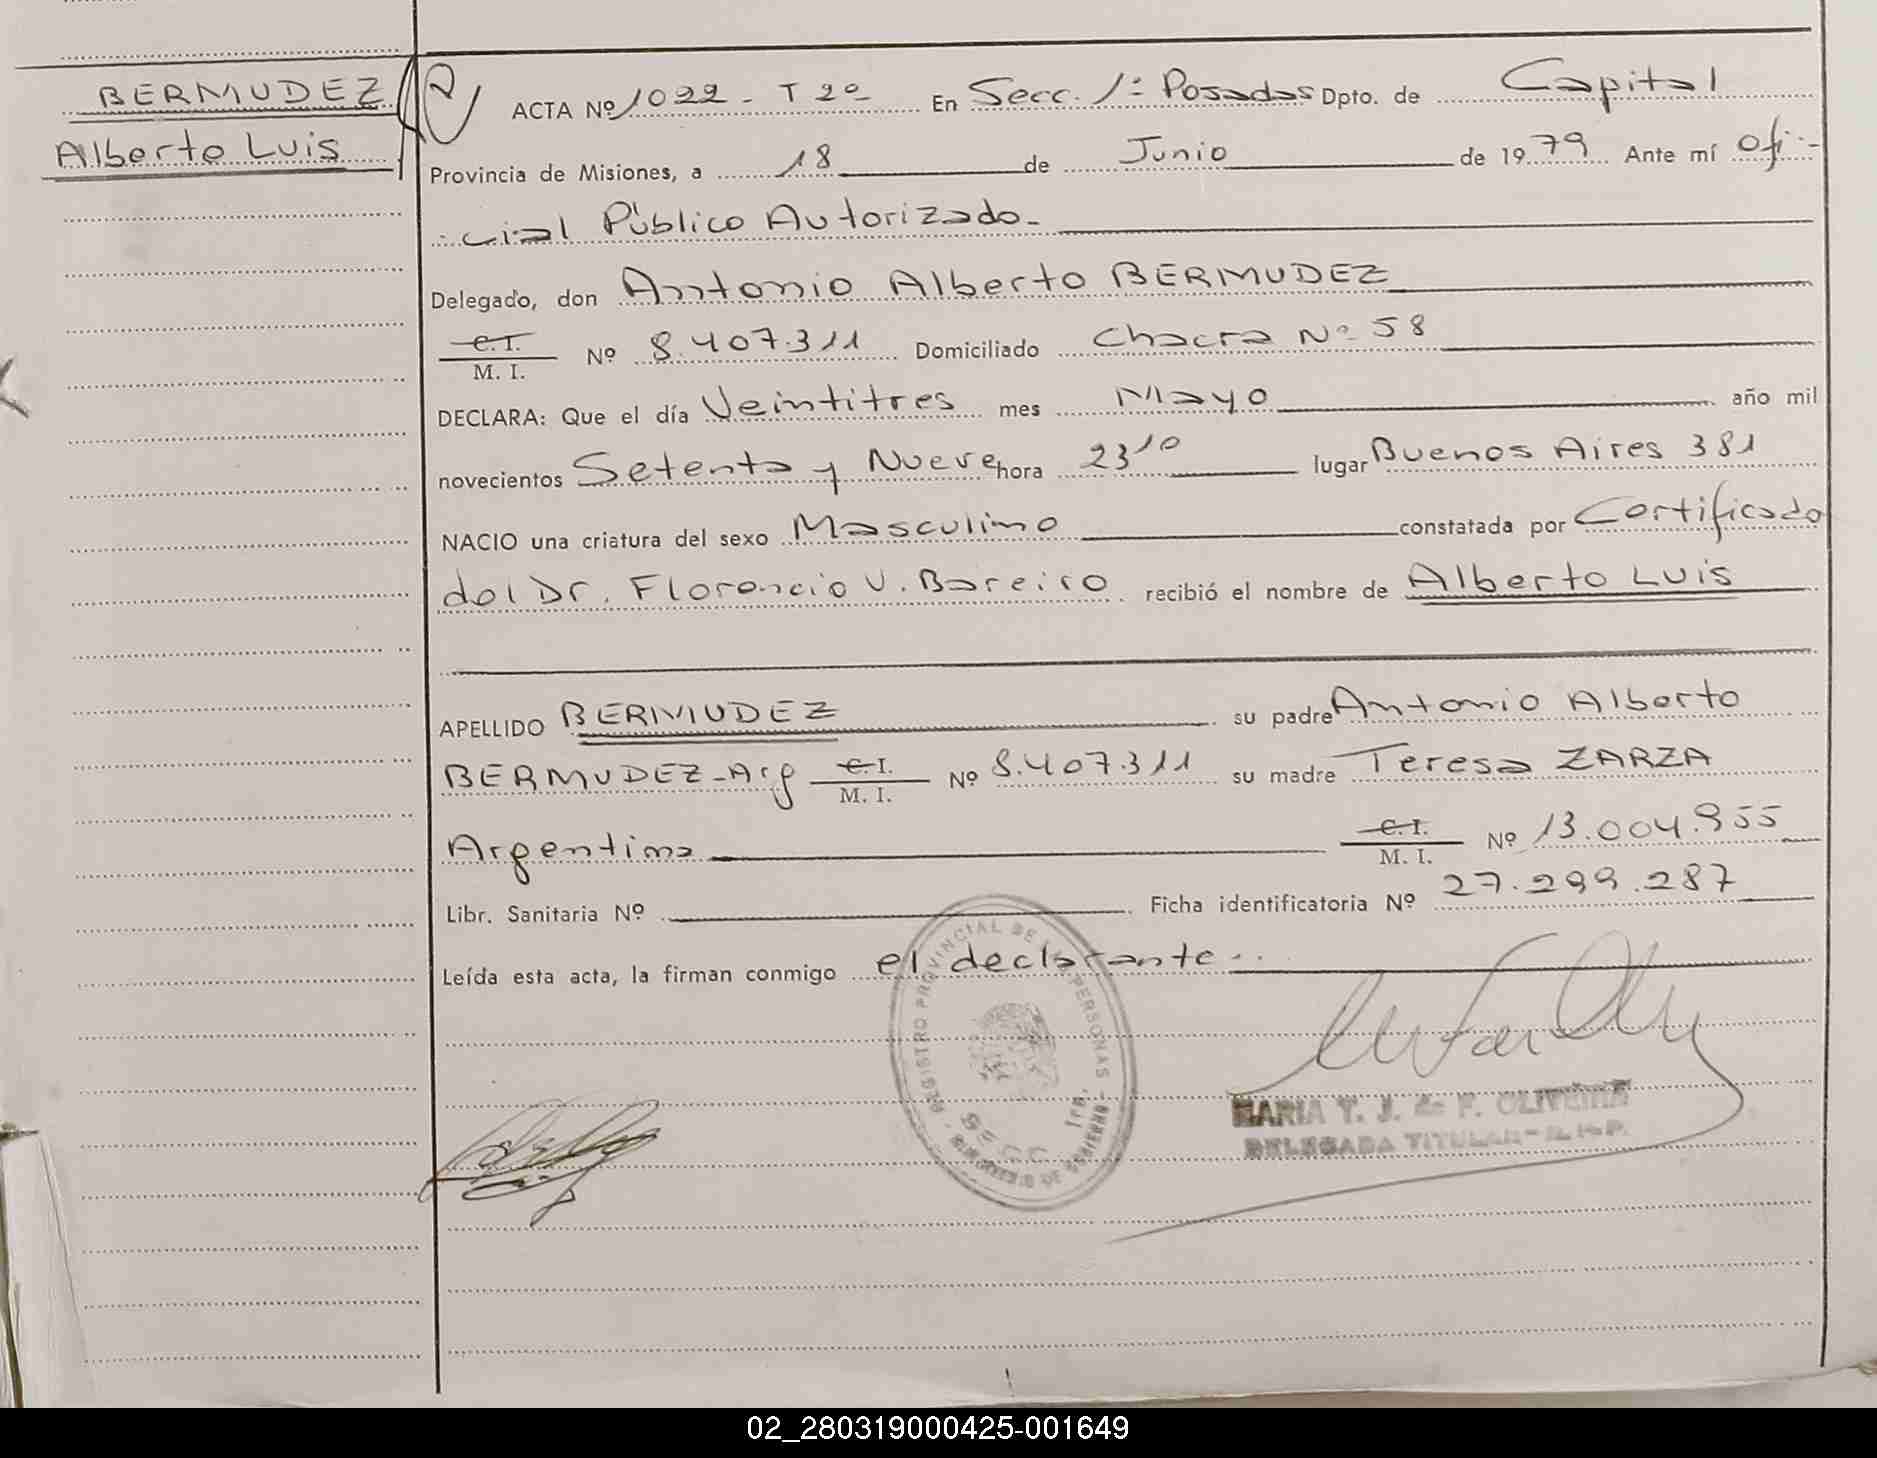 BERMUDEZ
Alberto Luis
ACTA Nº 1022 - T 2º En Secc. 1ª Posadas Dpto. de Capital
Provincia de Misiones, a 18 de Junio de 1979 Ante mí Ofi-
cial Público Autorizado-
Delegado, don Antonio Alberto BERMUDEZ
C. I.
M. I. Nº 8.407.311 Domiciliado Chacra Nº 58
DECLARA: Que el día Veintitres mes Mayo año mil
novecientos Setenta y Nueve hora 23 10 lugar Buenos Aires 381
NACIO una criatura del sexo Masculino constatada por Certificado
del Dr. Florencio V. Bareiro recibió el nombre de Alberto Luis
APELLIDO BERMUDEZ su padre Antonio Alberto
BERMUDEZ - Arg C. I.
M. I. Nº 8.407.311 su madre Teresa ZARZA
Argentina C. I.
M. I. Nº 13.004.955
Libr. Sanitaria Nº Ficha identificatoria Nº 27.299.287
Leída esta acta, la firman conmigo el declarante..
REGISTRO PROVINCIAL DE LAS PERSONAS
SECC 1ra.
MINISTERIO DE GOBIERNO
MARIA T. J. de F. OLIVEIRA
DELEGADA TITULAR - R. P. P.
02_280319000425-001649